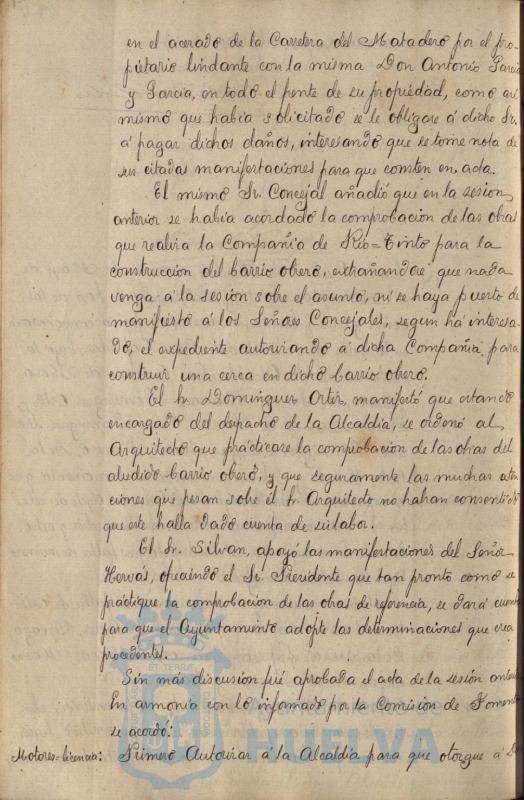 en el acerado de la Carretera del Matadero por el pro-
pietario lindante con la misma Don Antonio García
y García, en todo el frente de su propiedad, como asi
mismo que habia solicitado se le obligare á dicho Sr.
á pagar dichos daños, interesando que se tome nota de
sus citadas manifestaciones para que consten en acta.
El mismo Sr. Concejal añadió que en la sesion
anterior se habia acordado la comprobacion de las obras
que realiza la Compañia de Rio=Tinto para la
construccion del barrio obrero, extrañandore que nada
venga á la sesion sobre el asunto, ni se haya puesto de
manifiesto á los Señores Concejales, segun há interesa-
do, el expediente autorizando á dicha Compañia para
construir una cerca en dicho barrio obrero.
El Sr. Dominguez Ortiz, manifestó que estando
encargado del despacho de la Alcaldia, se ordenó al
Arquitecto que practicare la comprobacion de las obras del
aludido barrio obrero, y que seguramente las muchas aten
ciones que pesan sobre el Sr. Arquitecto no habian consentido
que este halla dado cuenta de su labor.
El Sr. Silvan, apoyó las manifestaciones del Señor
Hervás, ofreciendo el Sr. Presidente que tan pronto como se
práctique la comprobacion de las obras de referencia, se dará cuenta
para que el Ayuntamiento adopte las determinaciones que crea
procedentes.
Sin más discusion fué aprobada el acta de la sesión anterior
En armonia con lo informado por la Comision de Fomento
se acordó:
Motores=licencia: Primero Autorizar á la Alcaldia para que otorgue á D
Ayuntamiento de
HUELVA